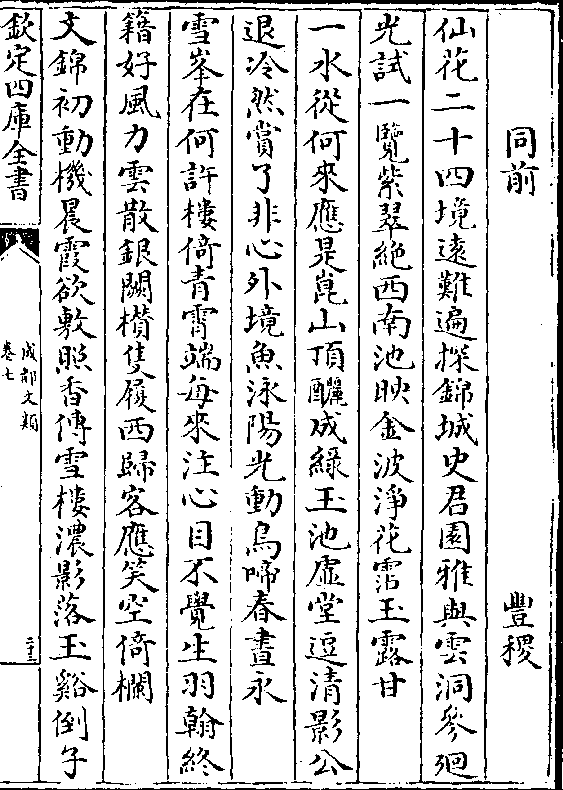 同前　豐稷
仙花二十四境遠難遍探錦城史君園雅與雲洞參廻
光試一覽紫翠絶西南池映金波淨花霑玉露甘
一水從何來應是崑山頂釃成綠玉池虛堂逗清影公
退冷然賞了非心外境魚泳陽光動鳥啼春晝永
雪峯在何許樓倚青霄端每來注心目不覺生羽翰終
籍好風力雲散銀闕櫕隻履西歸客應笑空倚欄
文錦初動機晨霞欲敷照香傳雪樓濃影落玉谿倒子
欽定四庫全書
成都文類
卷七
二十三